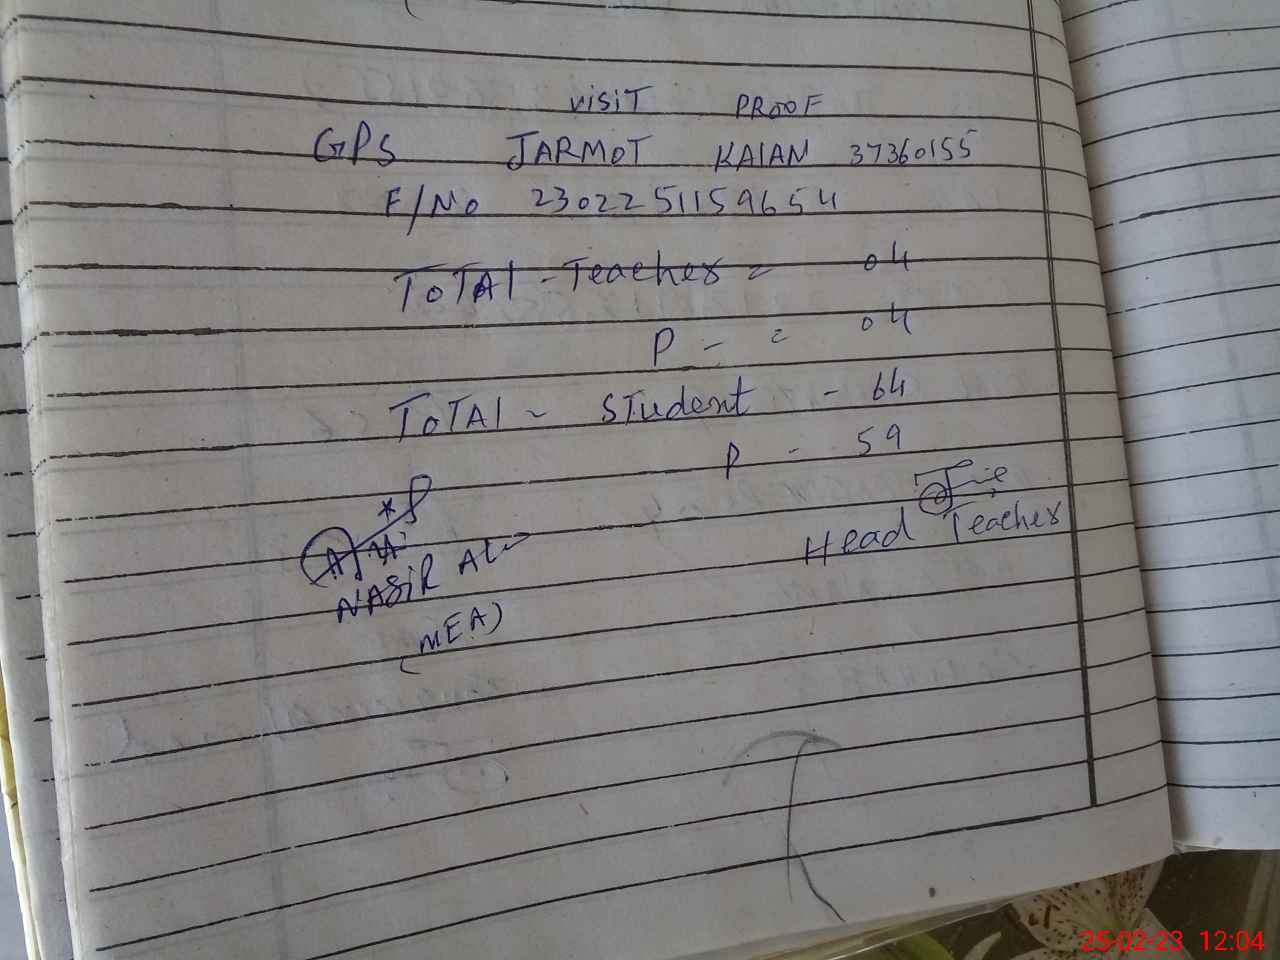 VISIT PROOF
GPS JARMOT KALAN 37360155
F/No 2302251159654
ToTAl - Teacher = 04
P - = 04
ToTAl - STudent - 64
P - 59
Head Teacher
NASIR ALi
(MEA)
25-02-23 12:04